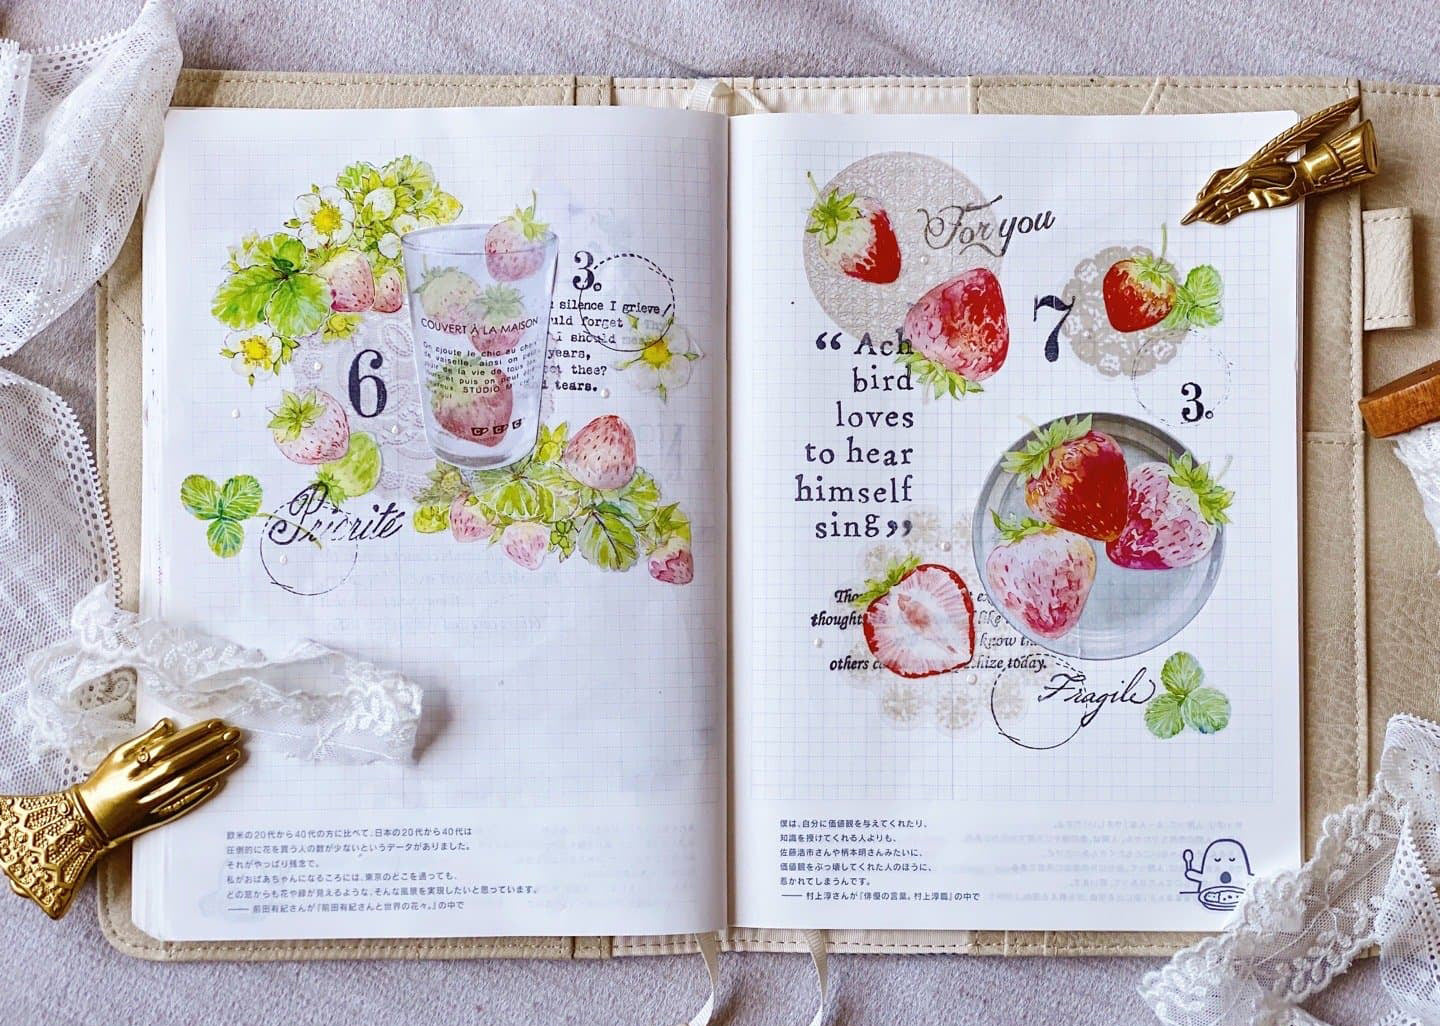 6
COUVERT À LA MAISON
On ajoute le chic au choix
de vaisselle, ainsi on peut
de la vie de tous les
et puis on peut
STUDIO M'
3.
silence I grieve,
forget
I should
years,
thee?
tears.
Priorité
欧米の20代から40代の方に比べて、日本の20代から40代は
圧倒的に花を買う人の数が少ないというデータがありました。
それがやっぱり残念で。
私がおばあちゃんになるころには、東京のどこを通っても、
どの窓からも花や緑が見えるような、そんな風景を実現したいと思っています。
—— 前田有紀さんが『前田有紀さんと世界の花々。』の中で
For you
7
3.
“ Ach
bird
loves
to hear
himself
sing”
thought
like
know
others
today.
Fragile
僕は、自分に価値観を与えてくれたり、
知識を授けてくれる人よりも、
佐藤浩市さんや柄本明さんみたいに、
価値観をぶっ壊してくれた人のほうに、
惹かれてしまうんです。
—— 村上淳さんが『俳優の言葉。村上淳篇』の中で